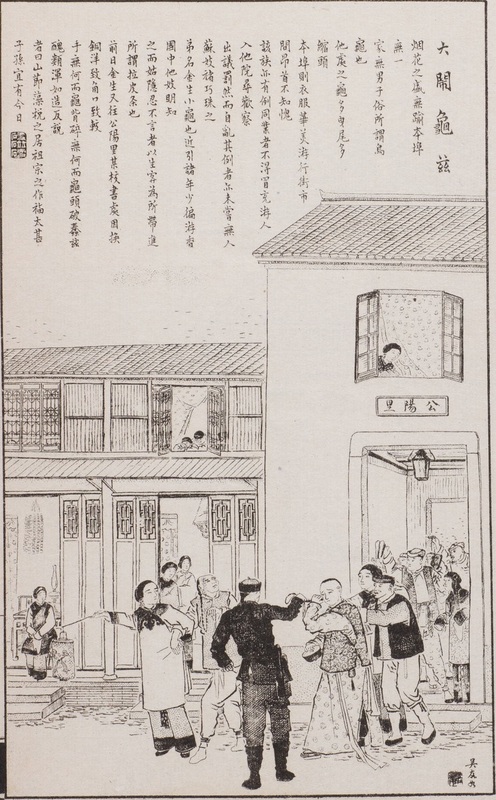 大鬧龜茲
烟花之盛無踰本埠
無一
家無男子俗所謂烏
龜也
他處之龜多曳尾多
縮頭
本埠則衣服華美游行街市
間昂首不知愧
該 亦有例同業者不得冒充游人
入他院尋歡察
出議罰然而自亂其例者亦未嘗無人
蘇妓諸巧珠之
弟名金生小龜也近引諸年少徧游香
國中他妓明知
之而姑隱忍不言者以生客為所帶進
所謂拉皮条也
前日金生又往公陽里某校書處因換
銅洋致角口致毆
手無何而龜背碎無何而龜頭破 該
醜類渾如造反說
者曰山節藻梲之居祖宗之作福大甚
子孫宜有今日
公陽里
吳友如